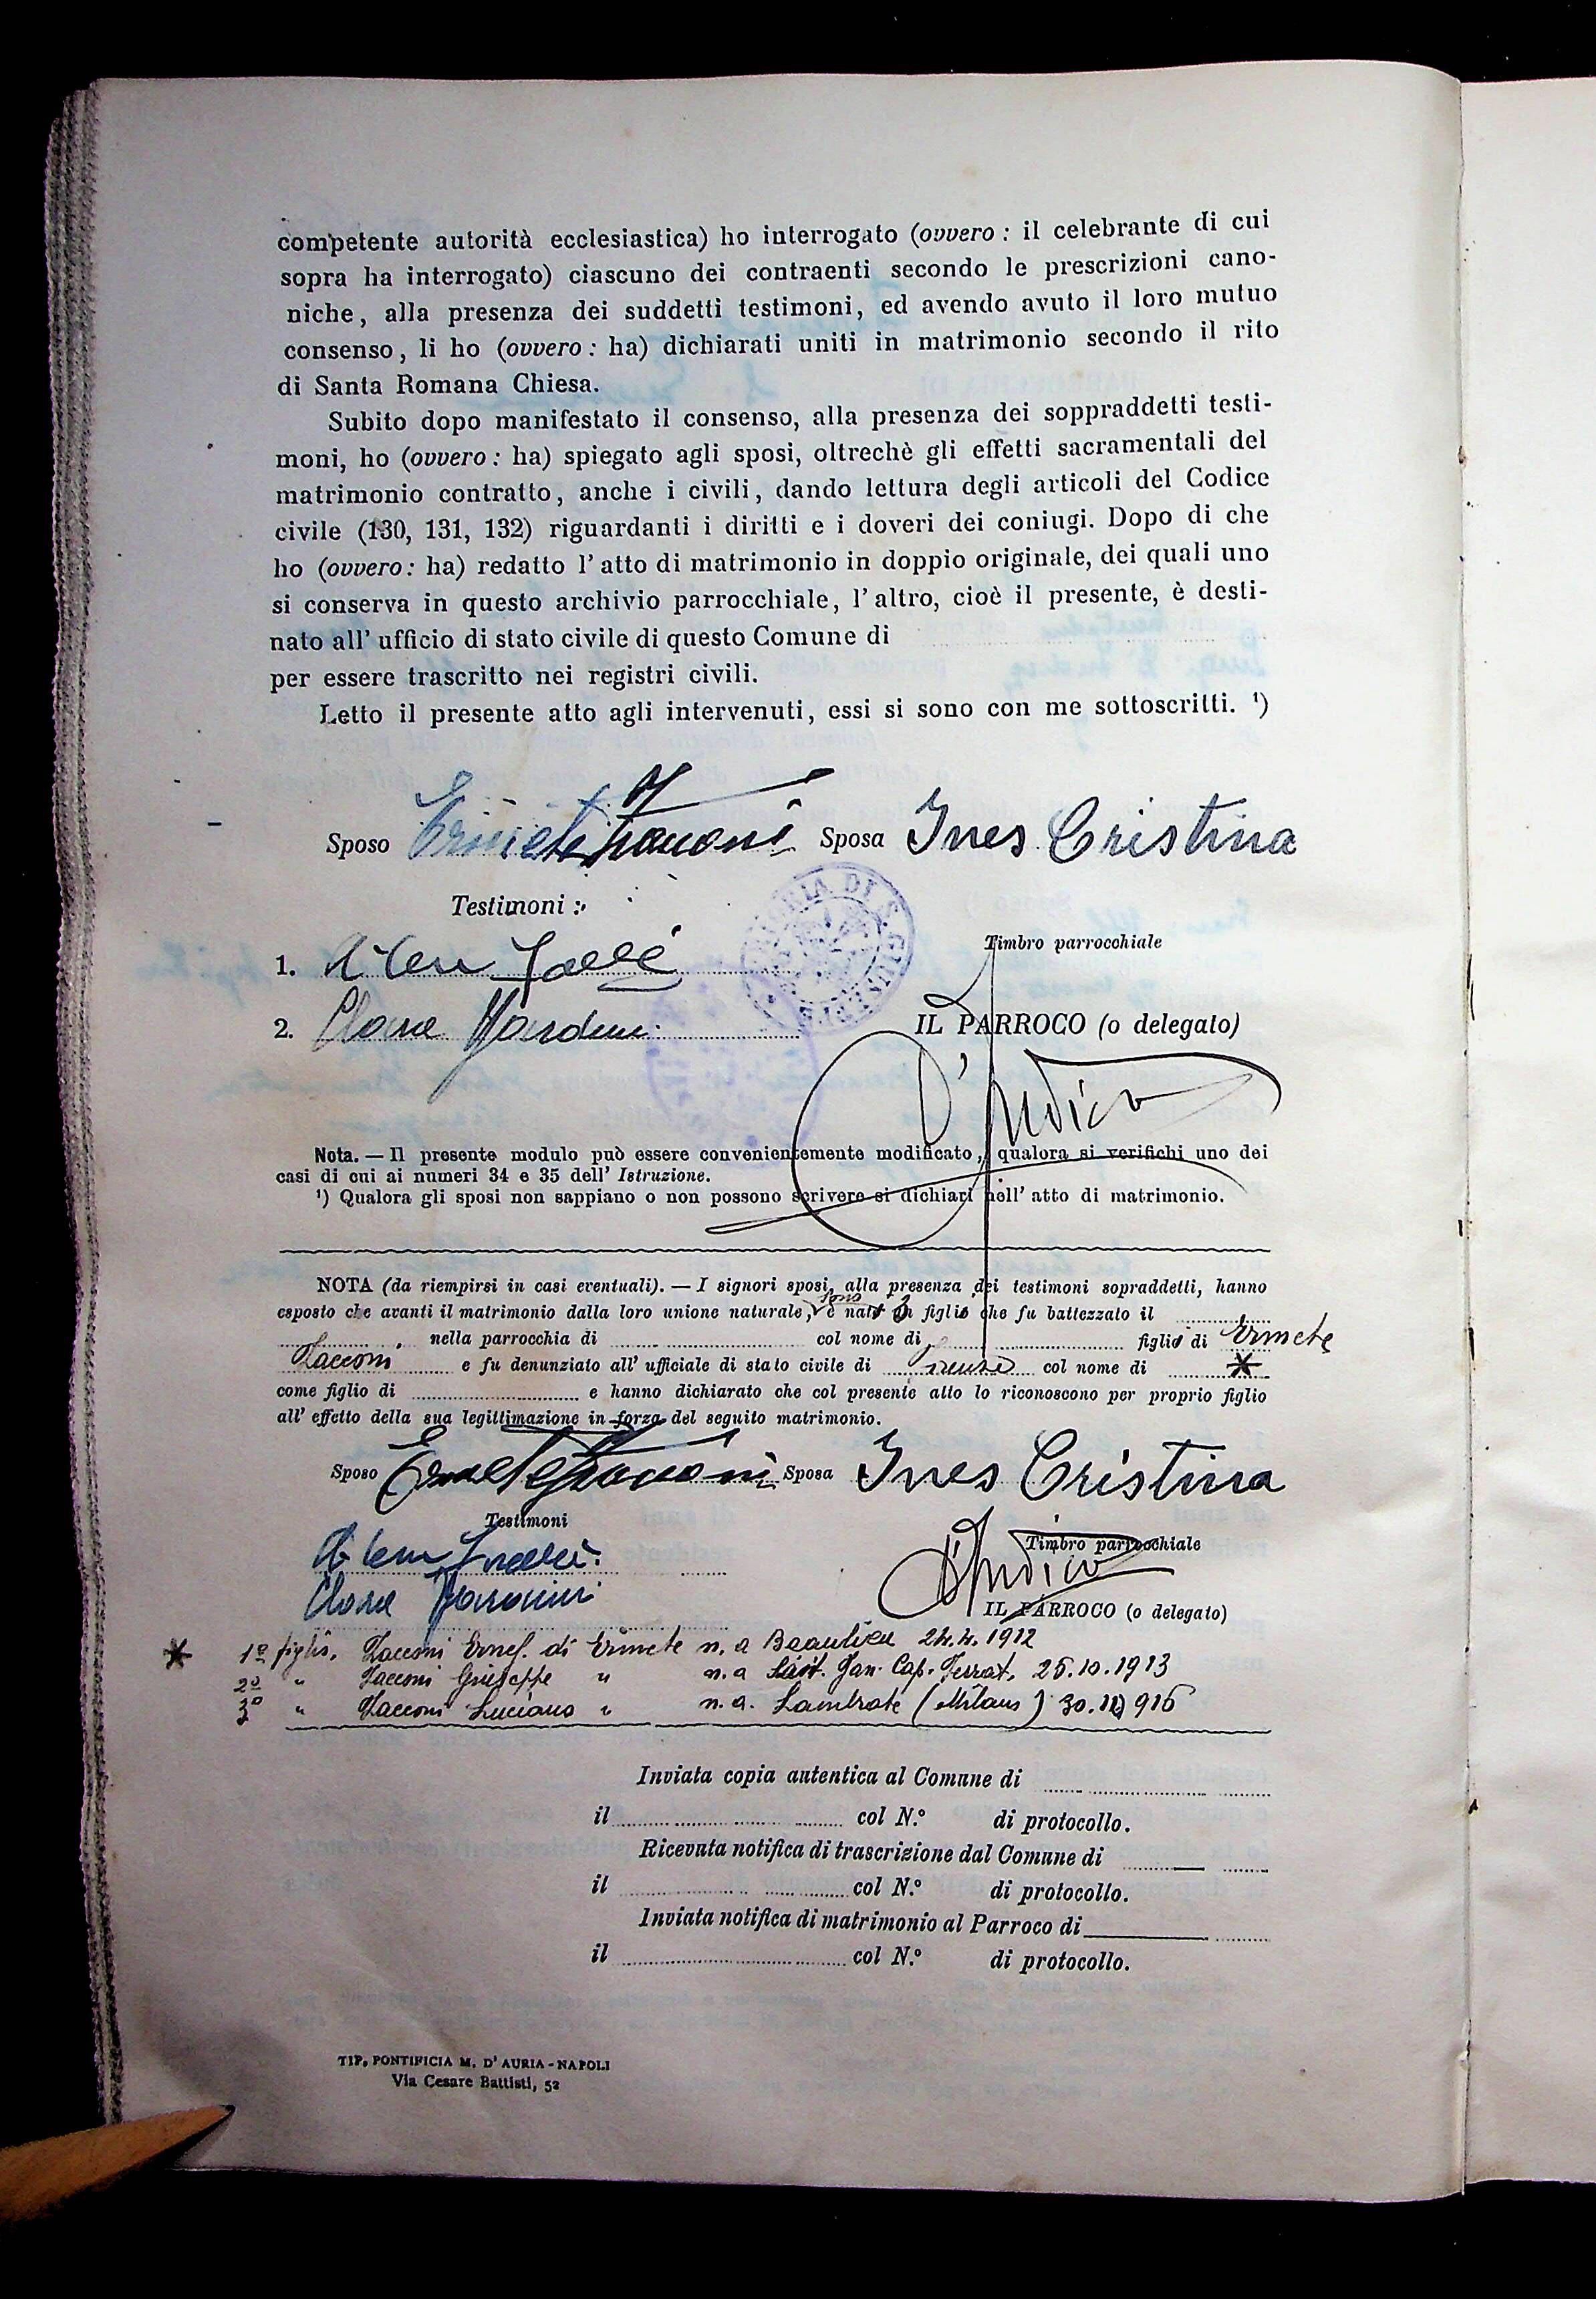 competente autorità ecclesiastica) ho interrogato (ovvero : il celebrante di cui
sopra ha interrogato) ciascuno dei contraenti secondo le prescrizioni cano-
niche, alla presenza dei suddetti testimoni, ed avendo avuto il loro mutuo
consenso, li ho (ovvero : ha) dichiarati uniti in matrimonio secondo il rito
di Santa Romana Chiesa.
Subito dopo manifestato il consenso, alla presenza dei soppraddetti testi-
moni, ho (ovvero : ha) spiegato agli sposi, oltrechè gli effetti sacramentali del
matrimonio contratto, anche i civili, dando lettura degli articoli del Codice
civile (130, 131, 132) riguardanti i diritti e i doveri dei coniugi. Dopo di che
ho (ovvero : ha) redatto l' atto di matrimonio in doppio originale, dei quali uno
si conserva in questo archivio parrocchiale, l' altro, cioè il presente, è desti-
nato all' ufficio di stato civile di questo Comune di
per essere trascritto nei registri civili.
Letto il presente atto agli intervenuti, essi si sono con me sottoscritti. ¹)
Sposo Ermete Zacconi Sposa Ines Cristina
Testimoni :
Timbro parrocchiale
1.
2. Clara
IL PARROCO (o delegato)
Nota. — Il presente modulo può essere convenientemente modificato, qualora si verifichi uno dei
casi di cui ai numeri 34 e 35 dell' Istruzione.
¹) Qualora gli sposi non sappiano o non possono scrivere si dichiari nell' atto di matrimonio.
NOTA (da riempirsi in casi eventuali). — I signori sposi, alla presenza dei testimoni sopraddetti, hanno
esposto che avanti il matrimonio dalla loro unione naturale, sono nati 3 figli che fu battezzato il
nella parrocchia di col nome di figli di Ermete
Zacconi e fu denunziato all' ufficiale di stato civile di col nome di *
come figlio di e hanno dichiarato che col presente atto lo riconoscono per proprio figlio
all' effetto della sua legittimazione in forza del seguito matrimonio.
Sposo Ermete Zacconi Sposa Ines Cristina
Testimoni
Timbro parrocchiale
Clara
IL PARROCO (o delegato)
* 1º figlio, Zacconi Ernes. di Ermete n. a Beaulieu 24.4.1912
2º " Zacconi Giuseppe " n. a Saint. Jan. Cap. Ferrat. 25.10.1913
3º " Zacconi Luciano " n. a. Lambrate (Milano)
Inviata copia autentica al Comune di
il col N.º di protocollo.
Ricevuta notifica di trascrizione dal Comune di
il col N.º di protocollo.
Inviata notifica di matrimonio al Parroco di
il col N.º di protocollo.
TIP. PONTIFICIA M. D' AURIA - NAPOLI
Via Cesare Battisti, 52